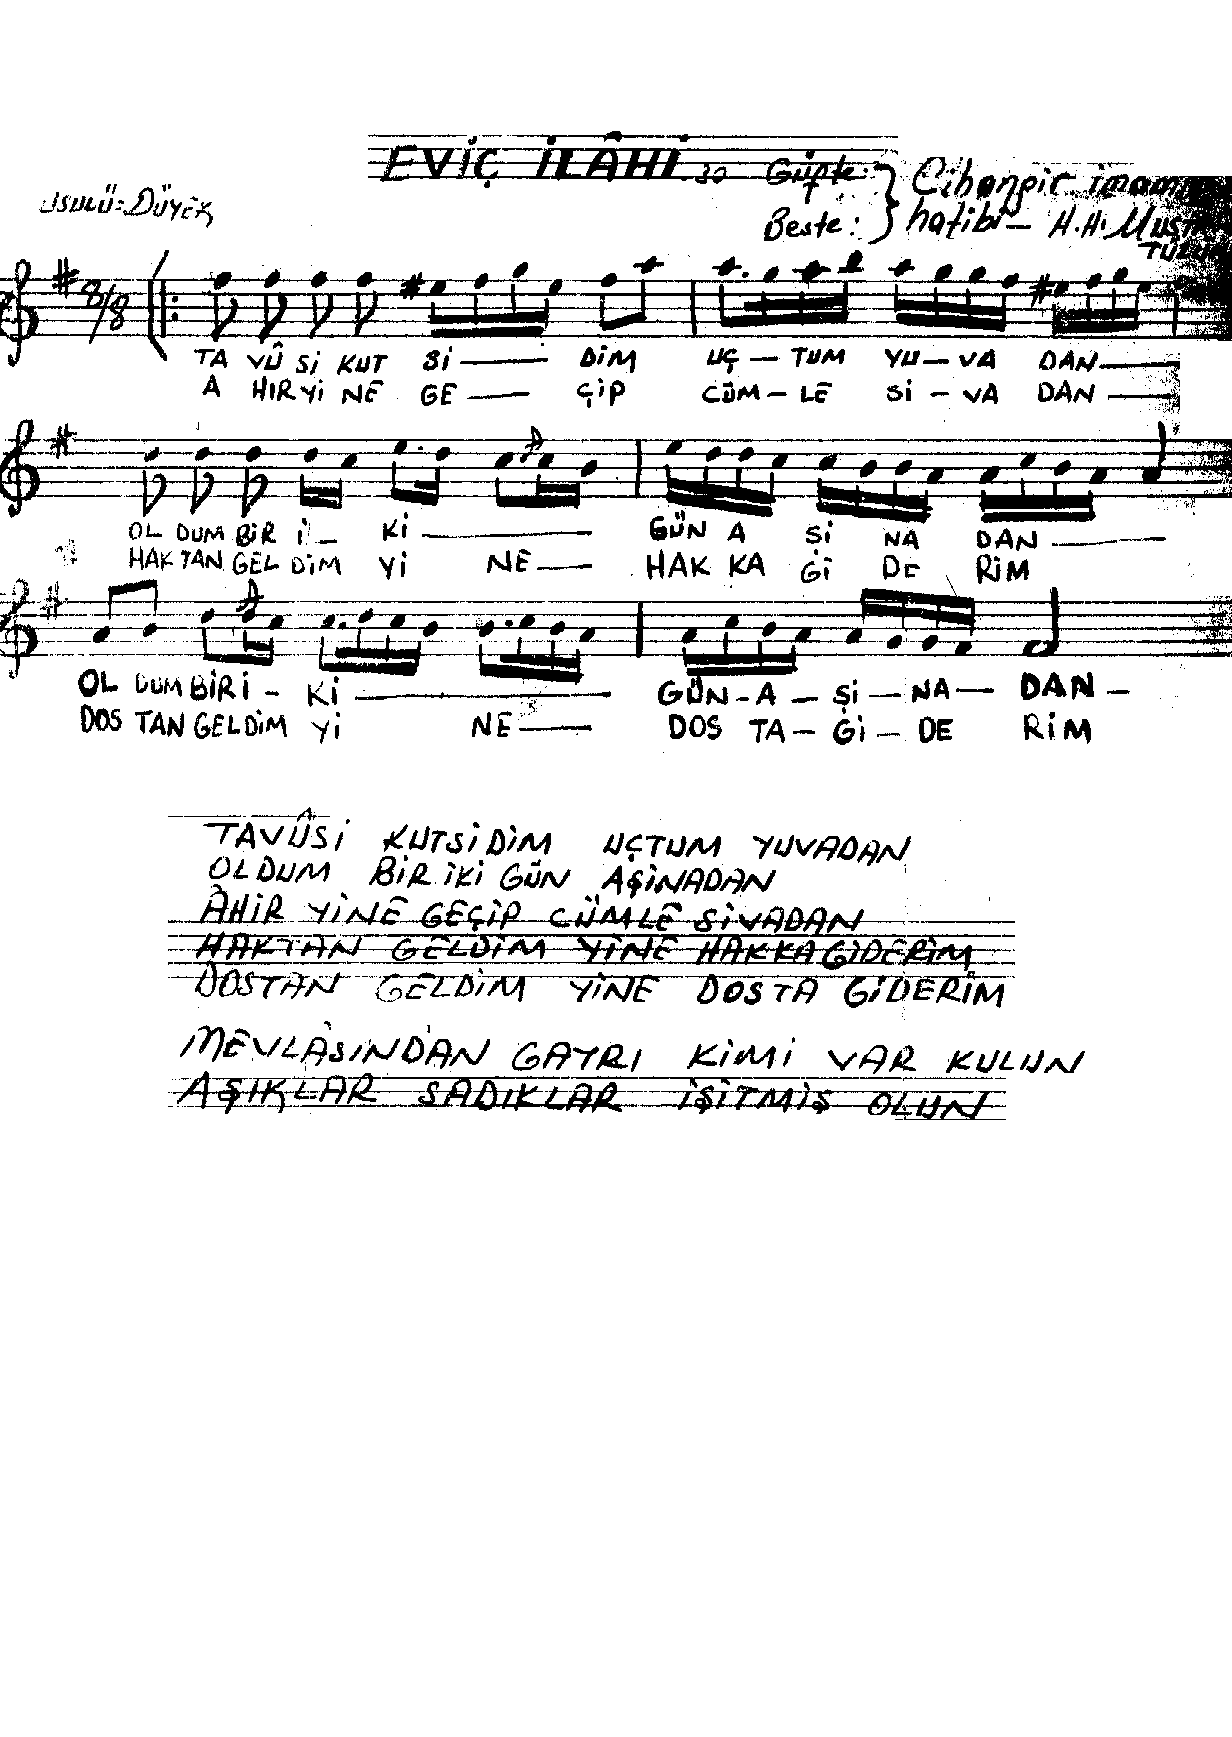 EVİÇ İLÂHİ 30
Güfte:
Cihangir imam
USULÜ: DÜYEK
Beste:
hatibi – H.H.
8/8
TA VÛ Sİ KUT Sİ — DİM UÇ – TUM YU – VA DAN —
A HIR Yİ NE GE — ÇİP CÜM – LE Sİ – VA DAN —
OL DUM BİR İ – Kİ — GÜN A Şİ NA DAN —
HAK TAN GEL DİM Yİ NE — HAK KA Gİ DE RİM
OL DUM BİR İ – Kİ — GÜN – A – Şİ – NA – DAN –
DOS TAN GELDİM Yİ NE — DOS TA – Gİ – DE RİM
TAVÛSİ KUTSİDİM UÇTUM YUVADAN
OLDUM BİR İKİ GÜN AŞİNADAN
ÂHİR YİNE GEÇİP CÜMLE SİVADAN
HAKTAN GELDİM YİNE HAKKA GİDERİM
DOSTAN GELDİM YİNE DOSTA GİDERİM
MEVLASINDAN GAYRI KİMİ VAR KULUN
AŞIKLAR SADIKLAR İŞİTMİŞ OLUN